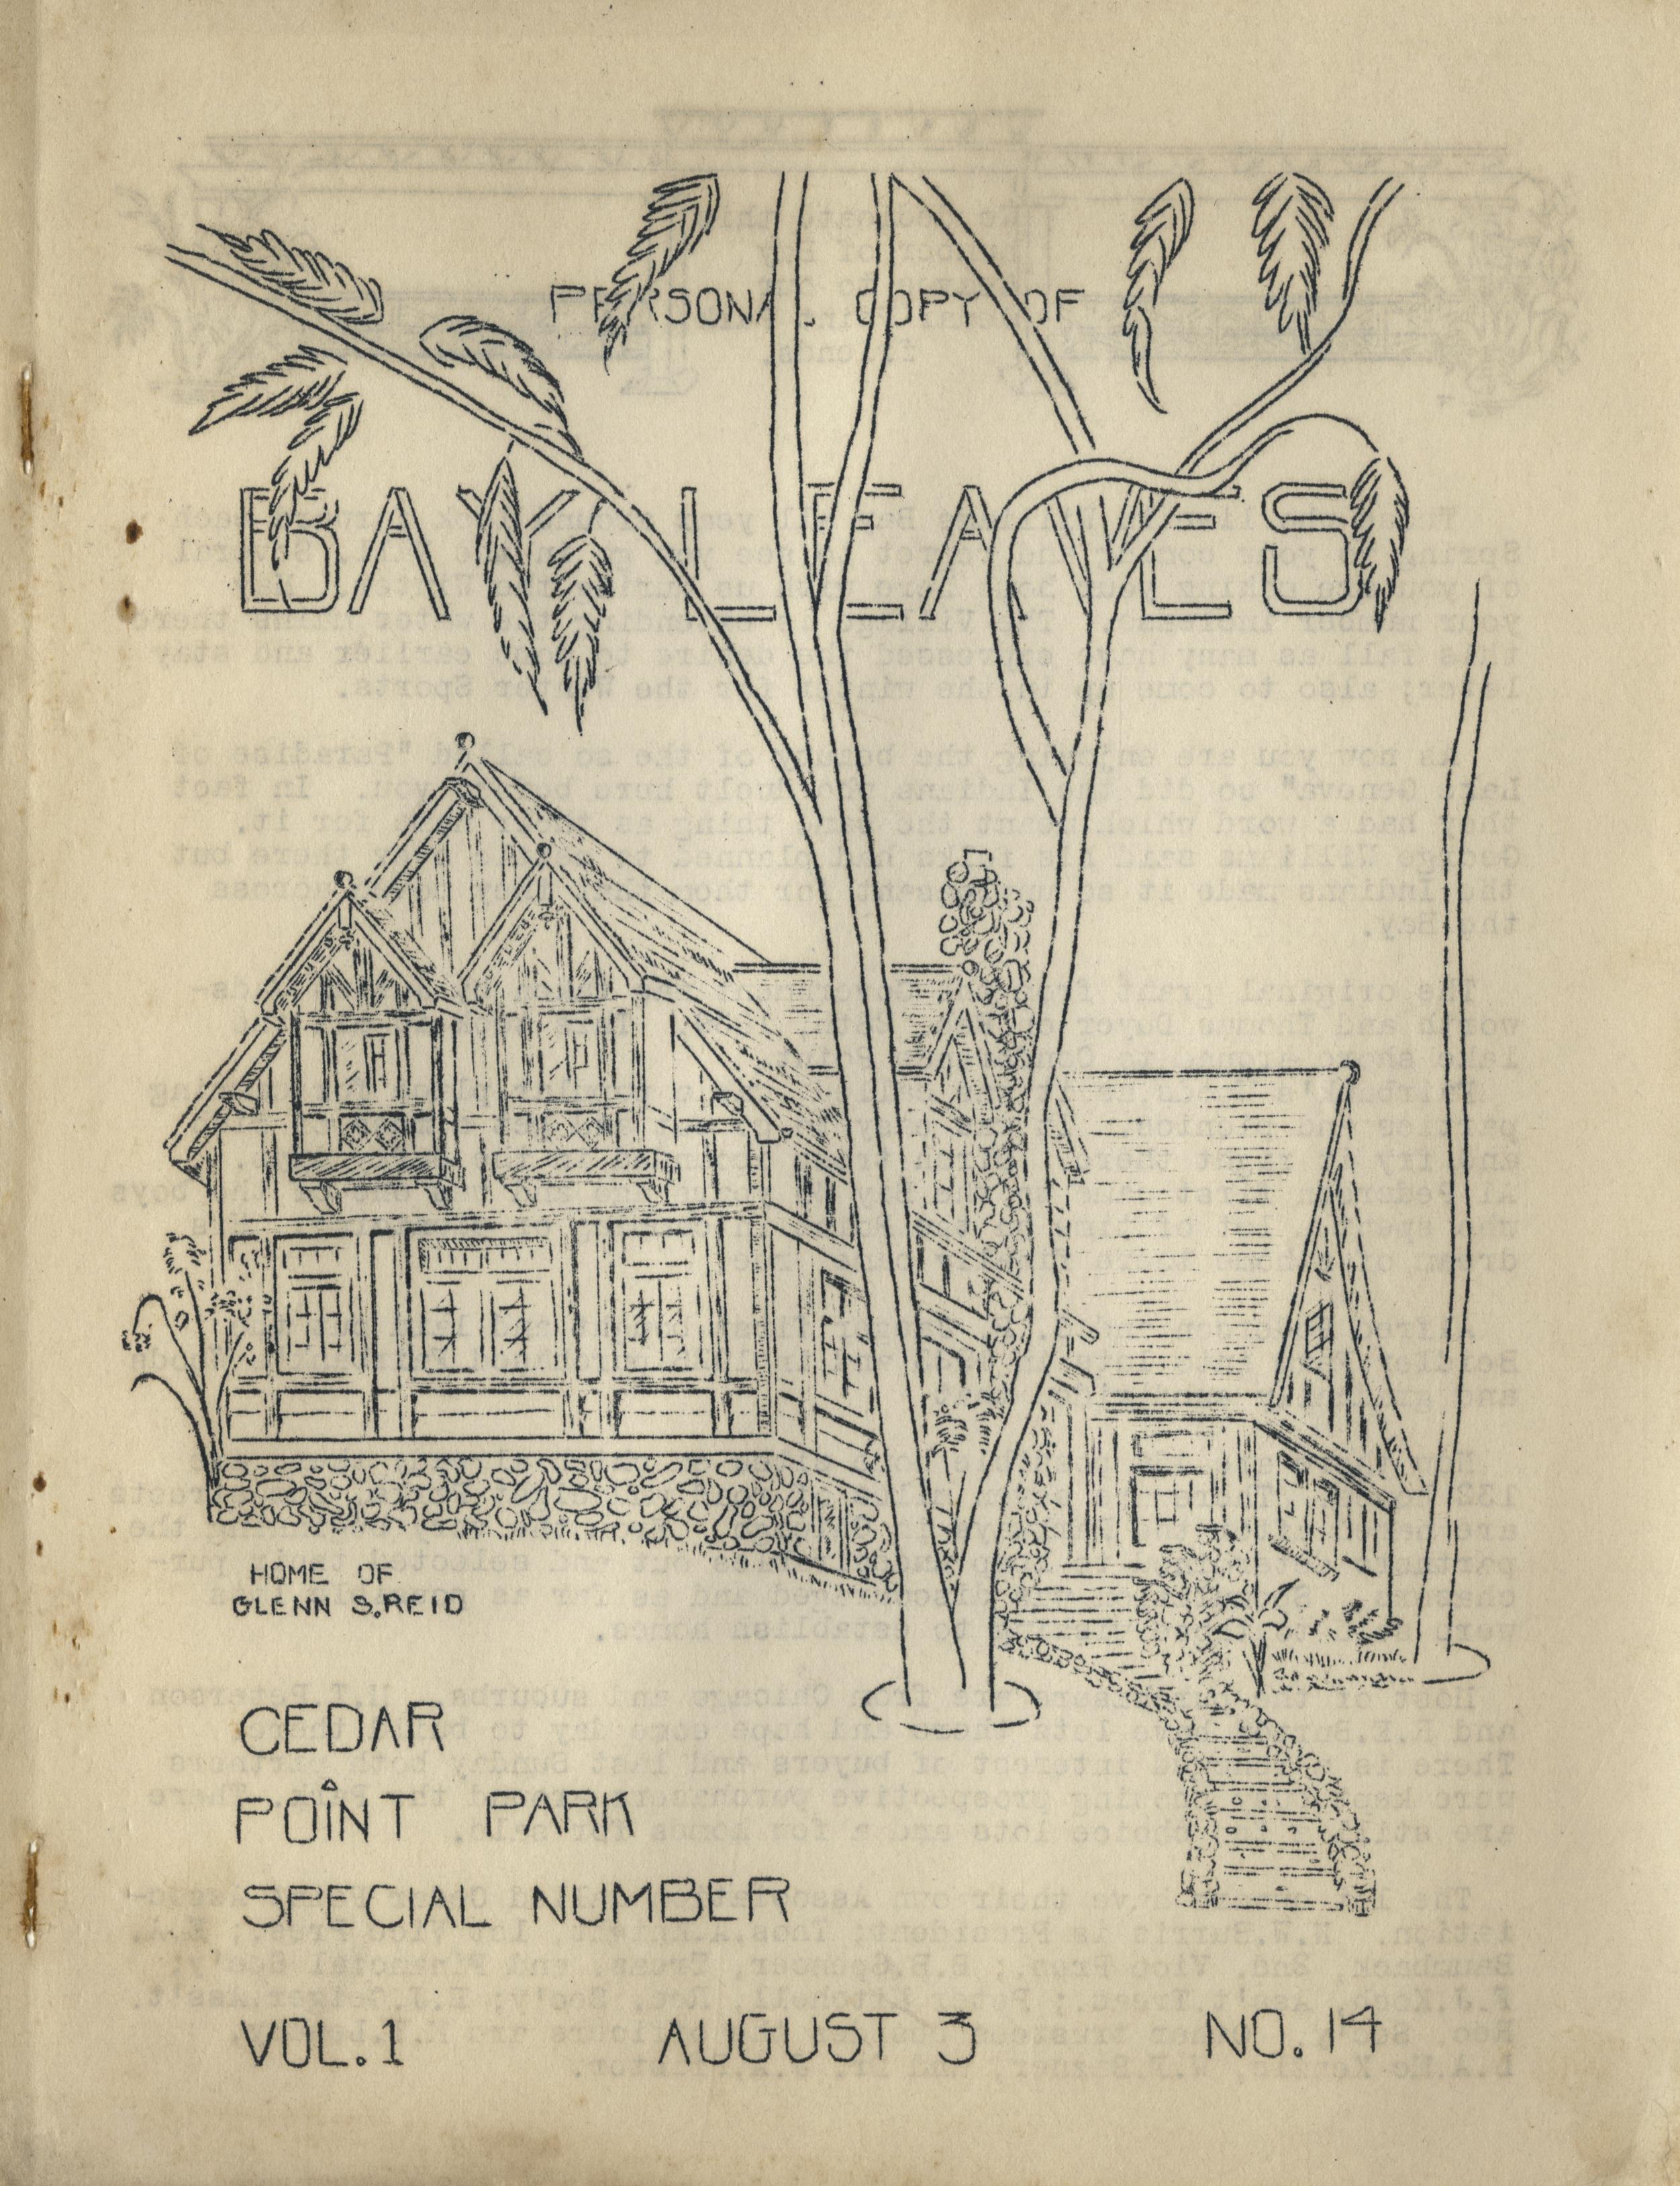 PERSONAL COPY OF
BAY LEAVES
HOME OF
GLENN S. REID
CEDAR
POINT PARK
SPECIAL NUMBER
VOL. 1 AUGUST 3 NO. 14